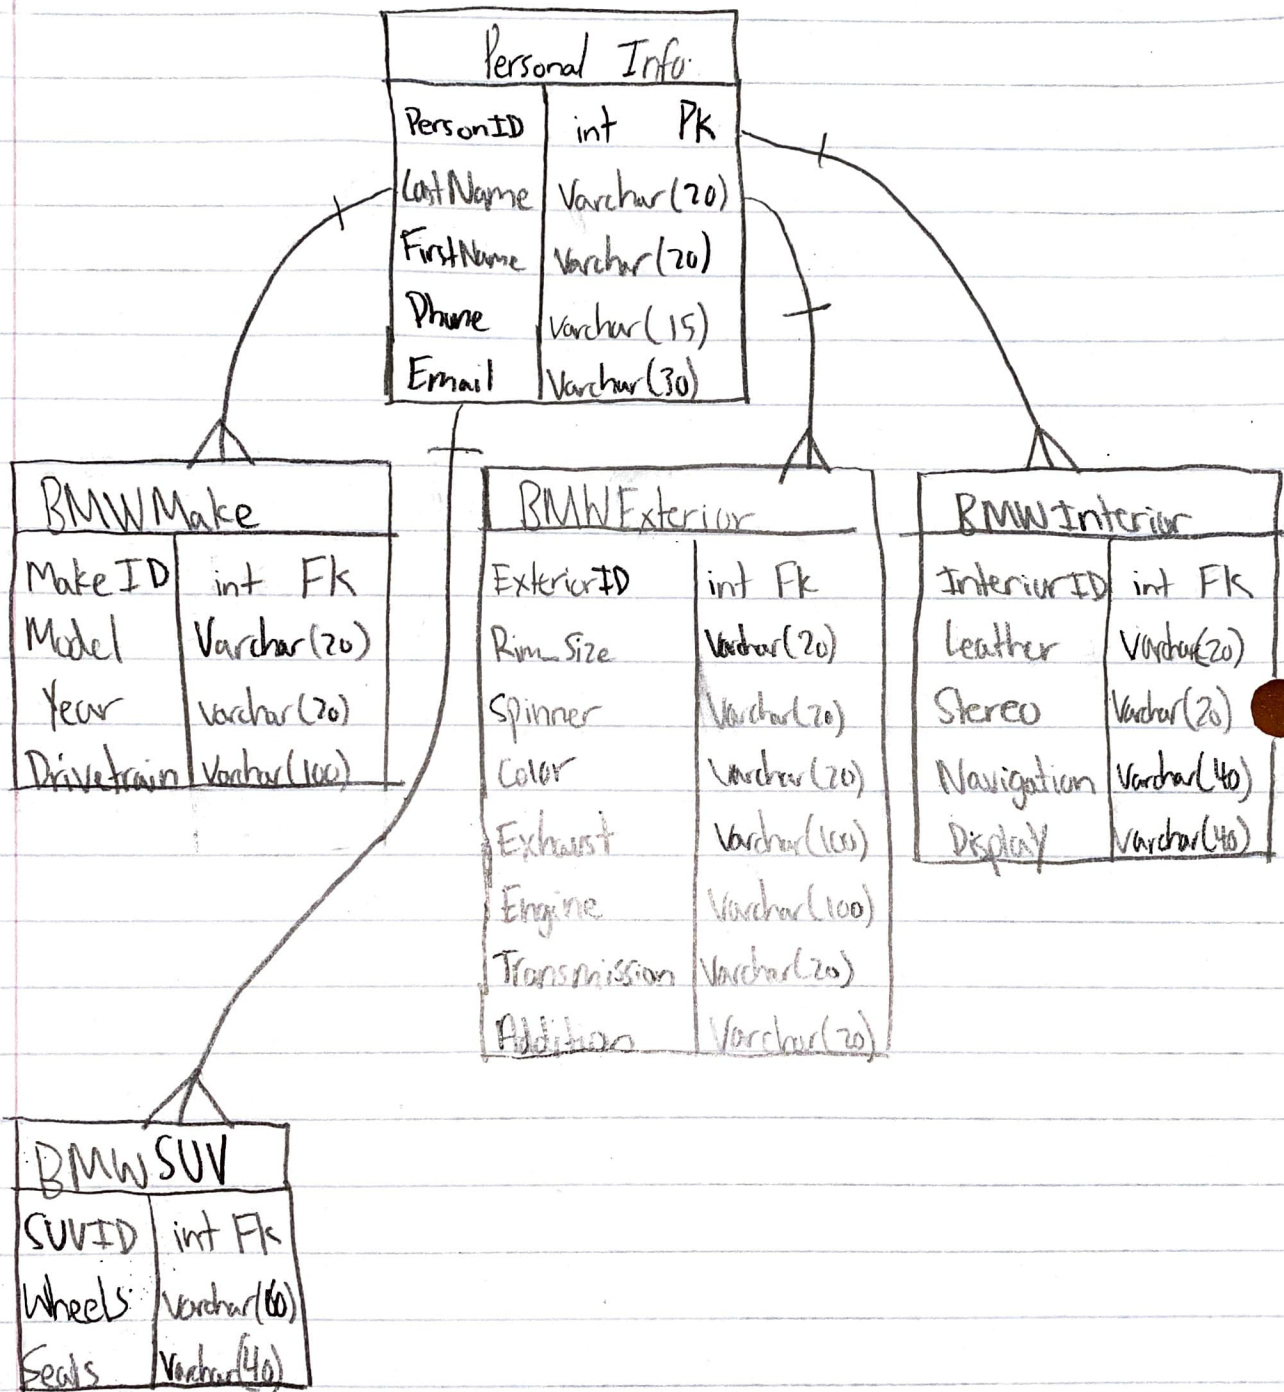 Personal Info
PersonID int Pk
LastName Varchar(20)
FirstName Varchar(20)
Phone Varchar(15)
Email Varchar(30)
BMWMake
MakeID int Fk
Model Varchar(20)
Year Varchar(20)
Drivetrain Varchar(100)
BMWExterior
ExteriorID int Fk
Rim_Size Varchar(20)
Spinner Varchar(20)
Color Varchar(20)
Exhaust Varchar(100)
Engine Varchar(100)
Transmission Varchar(20)
Addition Varchar(20)
BMWInterior
InteriorID int Fk
Leather Varchar(20)
Stereo Varchar(20)
Navigation Varchar(40)
Display Varchar(40)
BMWSUV
SUVID int Fk
Wheels
Seats Varchar(40)